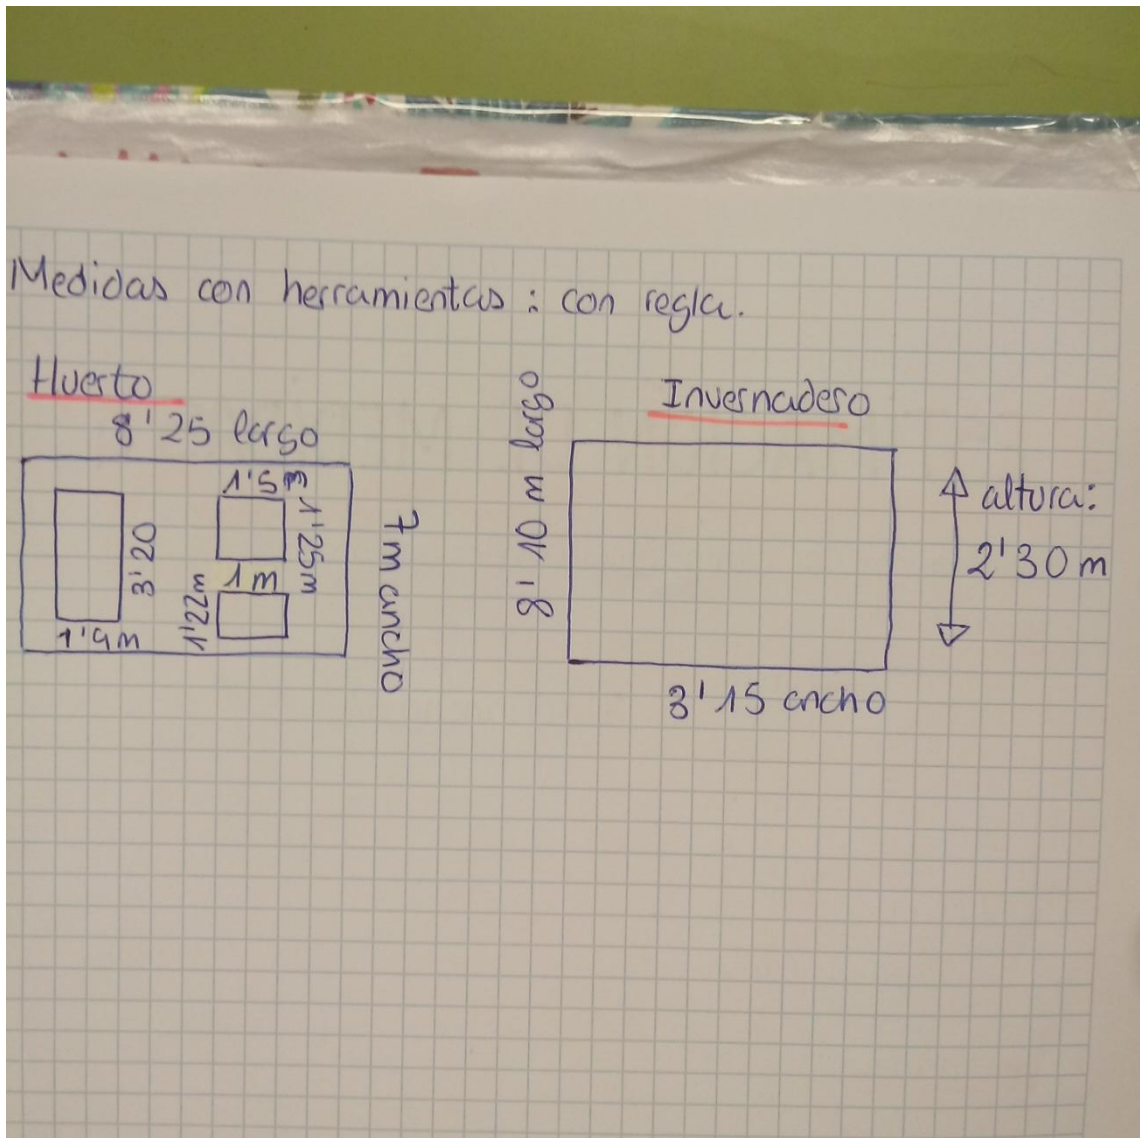 Medidas con herramientas : con regla.
Huerto
8'25 largo
1'5 m
1'25 m
3'20
1 m
1'22m
1'4m
7m ancho
Invernadero
8'10 m largo
altura:
2'30 m
3'15 ancho